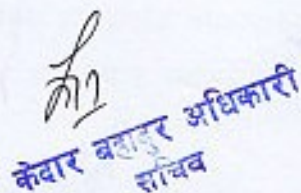 केदार बहादुर अधिकारी
सचिव